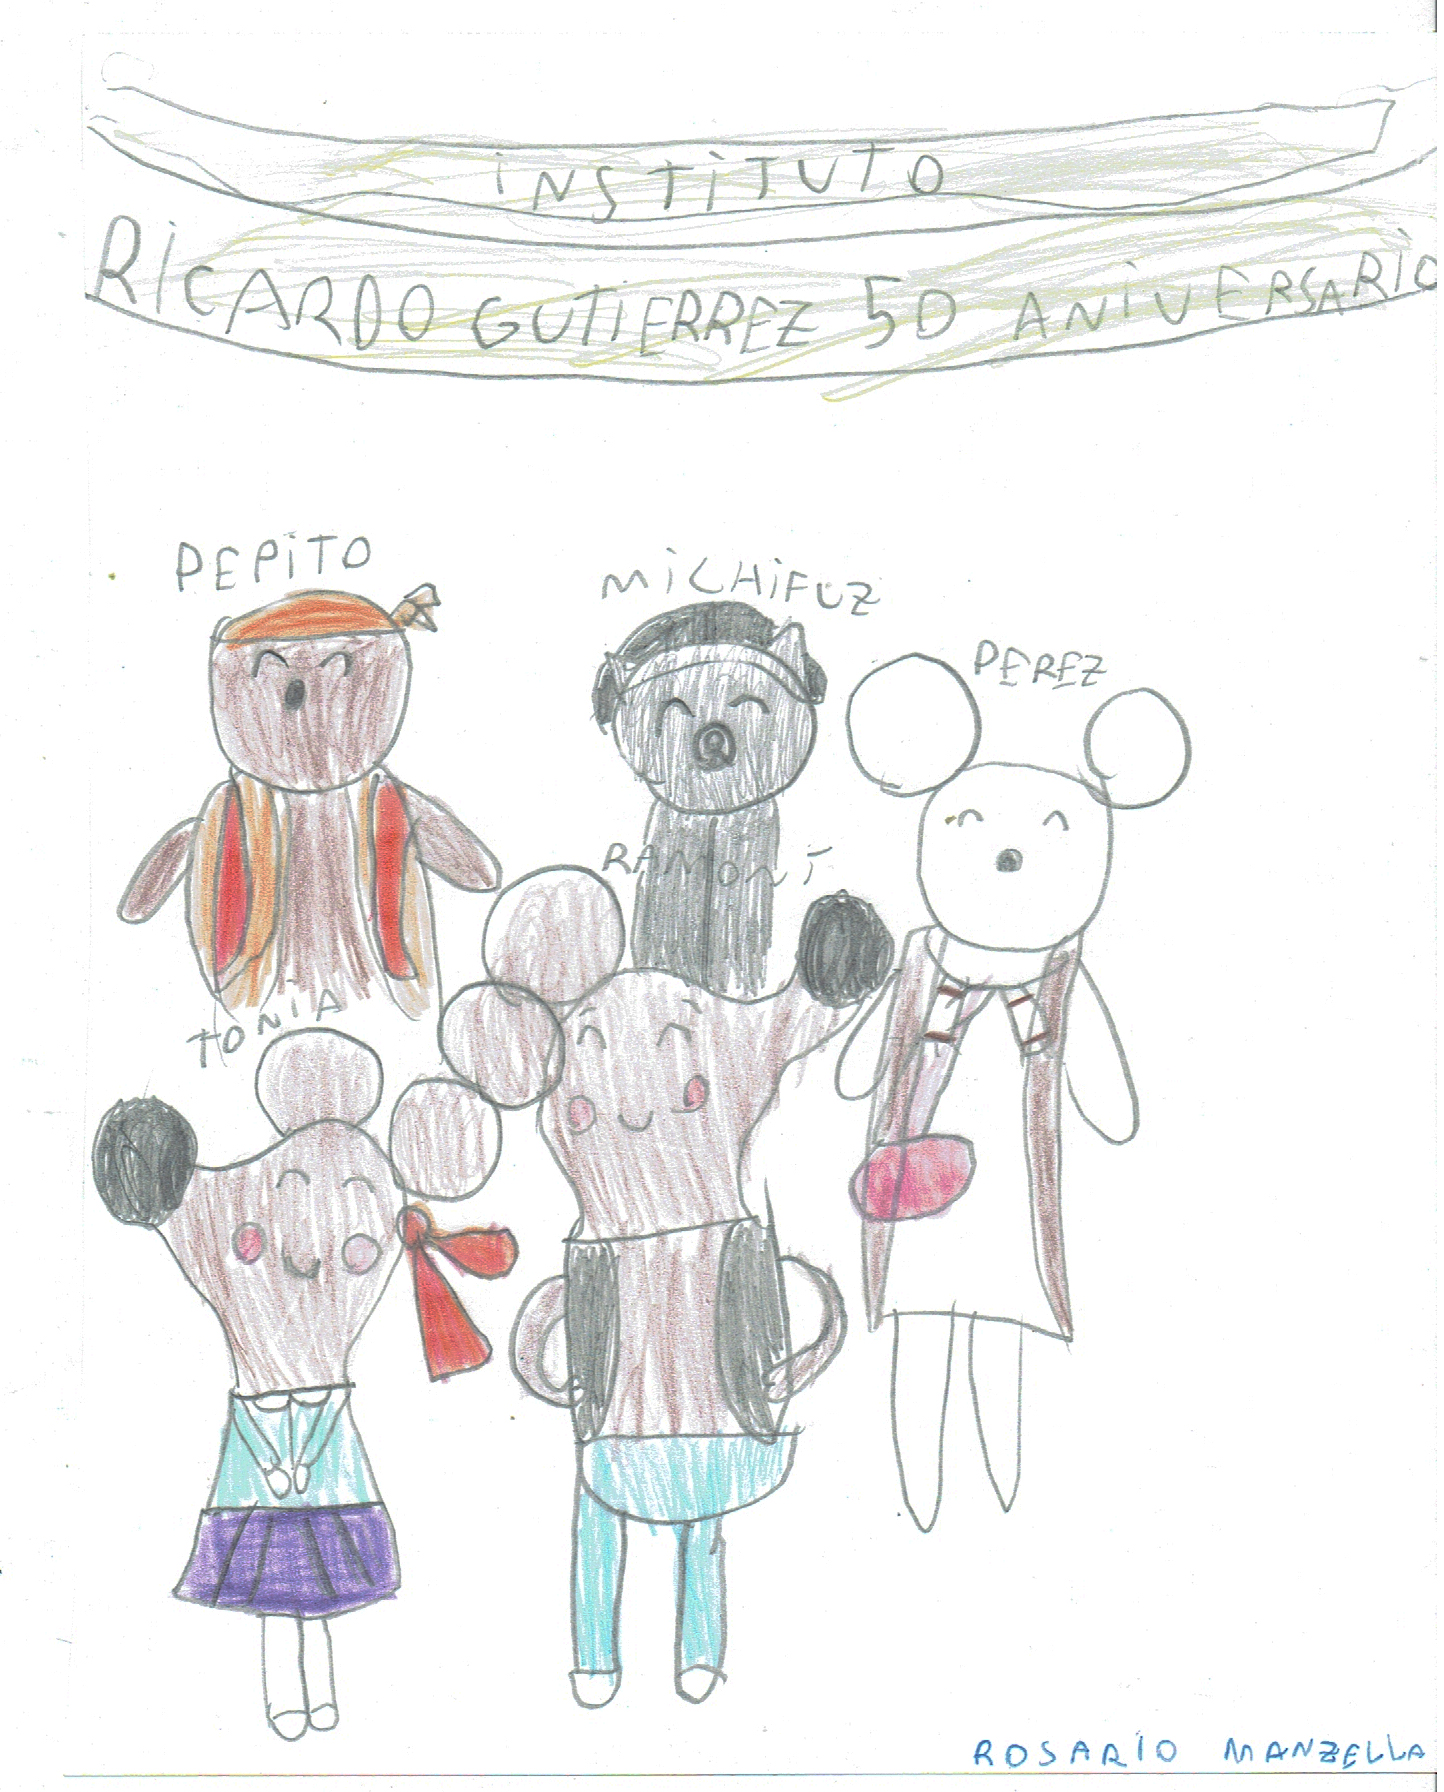 iNSTiTUTO
RiCARDO GUTiERREZ 50 ANiVERSARiO
PEPiTO
MiCHiFUZ
PEREZ
RAMONT
TONiA
ROSARIO MANZELLA